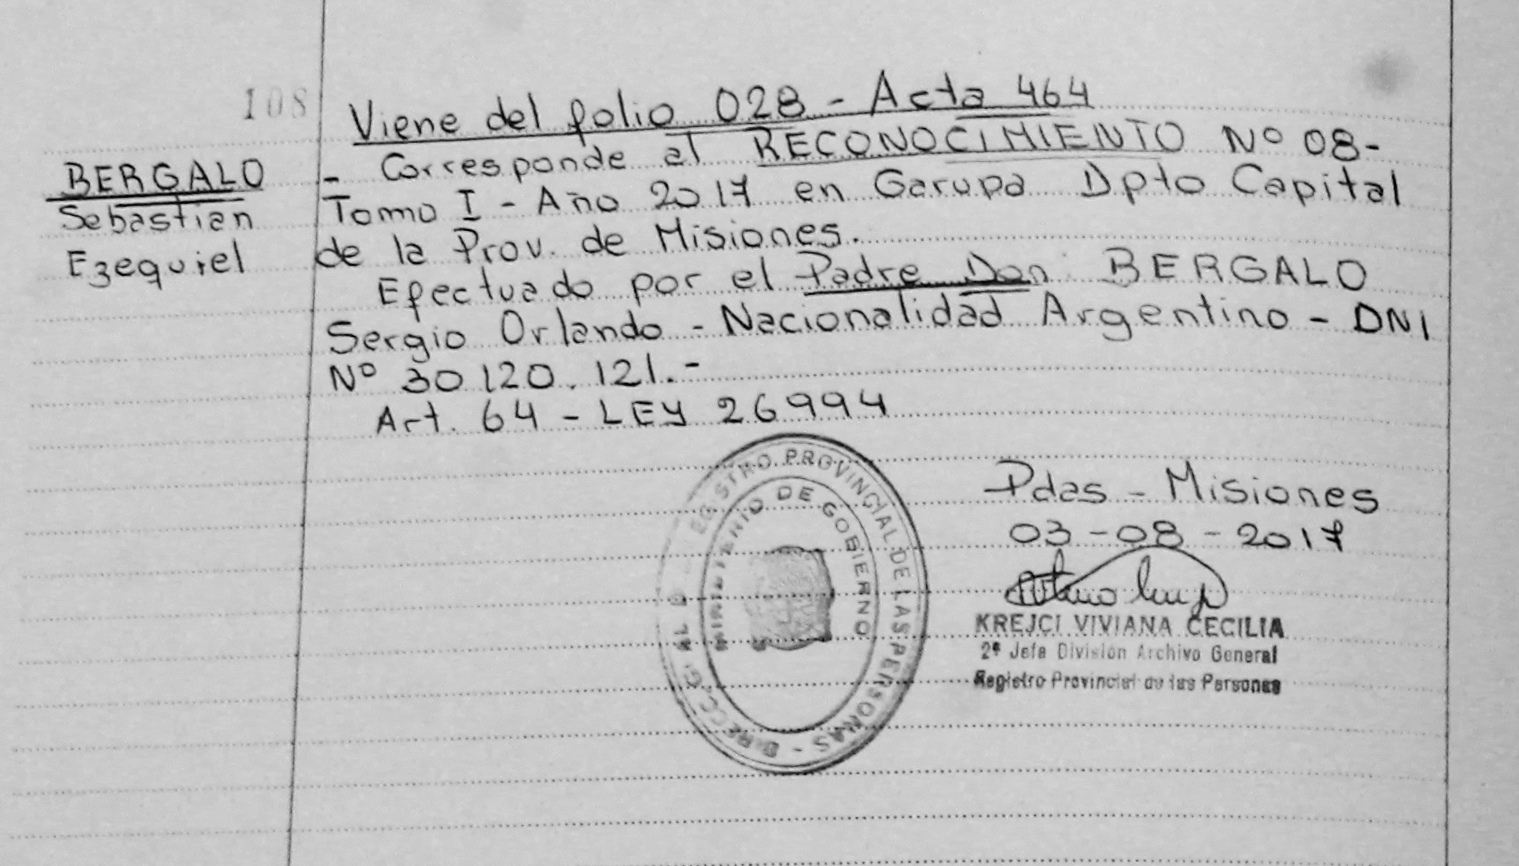 108
Viene del folio 028 - Acta 464
BERGALO
Sebastian
Ezequiel
- Corresponde al RECONOCIMIENTO Nº 08-
Tomo I - Año 2017 en Garupa Dpto Capital
de la Prov. de Misiones.
Efectuado por el Padre Don BERGALO
Sergio Orlando - Nacionalidad Argentino - DNI
Nº 30120.121.-
Art. 64 - LEY 26994
REGISTRO PROVINCIAL DE LAS PERSONAS -
MINISTERIO DE GOBIERNO
Pdas - Misiones
03-08-2017
KREJCI VIVIANA CECILIA
2ª Jefa División Archivo General
Registro Provincial de las Personas